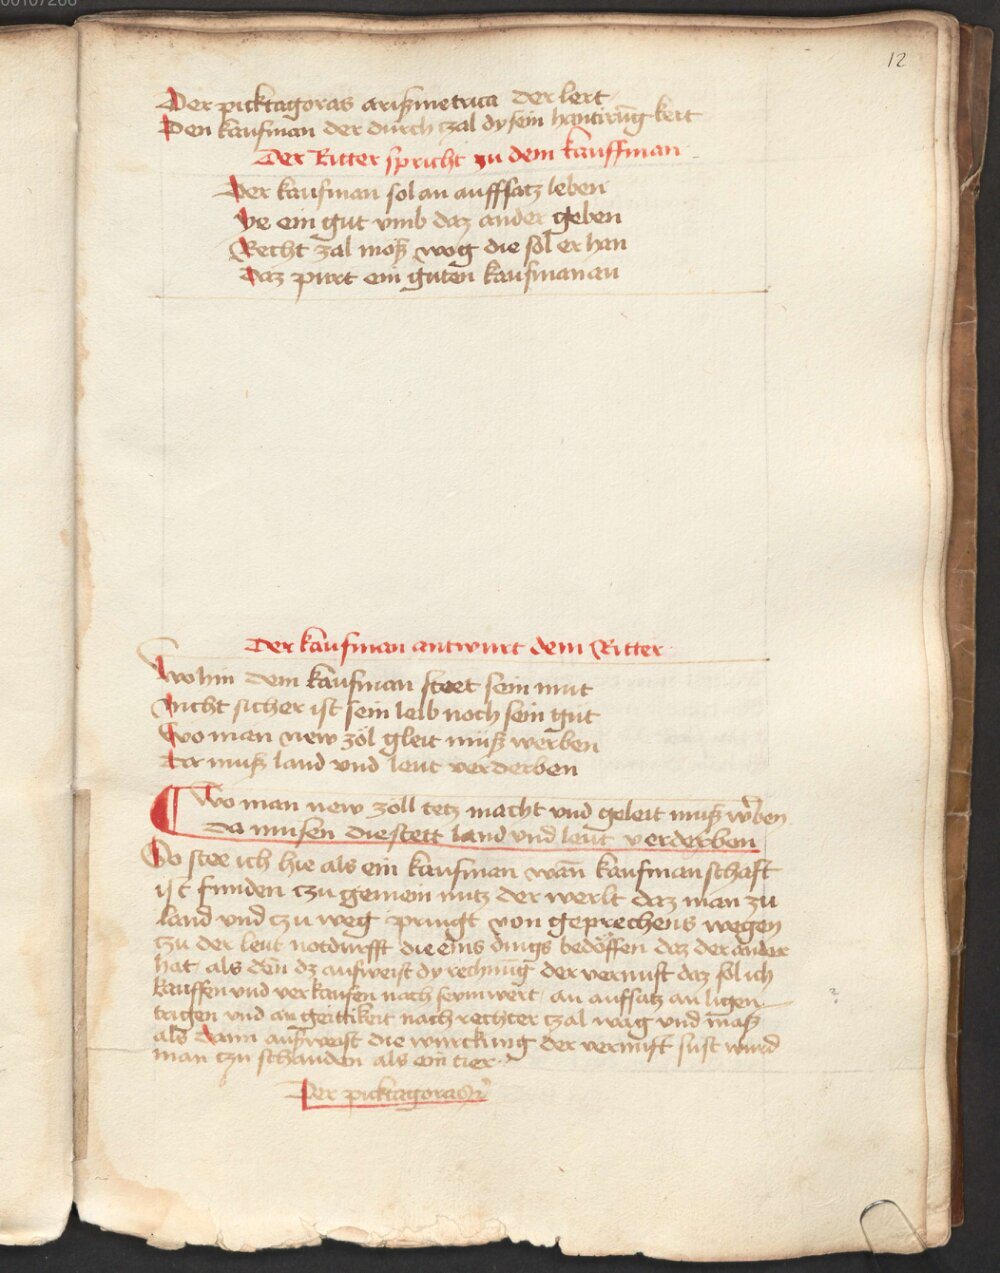 00107266
12
Der picktagoras arißmetrica der lert
Den kaufman der durch tzal dy sein hantirūg keit
Der Ritter spricht zu dem kauffman
Der kaufman sol an aufffatz leben
ye ein gut vmb daz ander geben
Recht zal moß wog die sol er han
Daz purt ein guten kaufman an
Der kaufman antwurt dem Ritter
Wo hin dem kaufman steet sein mut
Nicht sicher ist sein leib noch sein gut
Wo man new zöl gleit muß werben
Da muß land vnd leut verderben
¶ Wo man new zöll tetz macht vnd geleit muß w̃ben
Da musen die stett land vnd leut verderben
So stee ich hie als ein kaufman wañ kaufmanschaft
ist funden tzu gemein nutz der werlt daz man zu
land vnd tzu weg pringt von geprechens wegen
tzu der leut notdurfft die eins dings bedöffen daz der ander
hat als den dz aufweist dy rechnūg der vernuft daz sol ich
kauffen vnd verkaufen nach seym wert an auffatz an ligen
trigen vnd an geittikeit nach rechter tzal wag vnd maß
als dann außweist die wurckung der vernuft sust wurd
man tzu schanden als ein tier
Der picktagoras